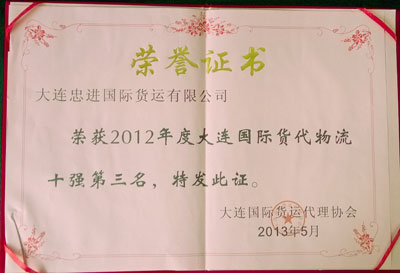 荣誉证书
大连忠进国际货运有限公司
荣获2012年度大连国际货代物流
十强第三名，特发此证。
大连国际货运代理协会
2013年5月